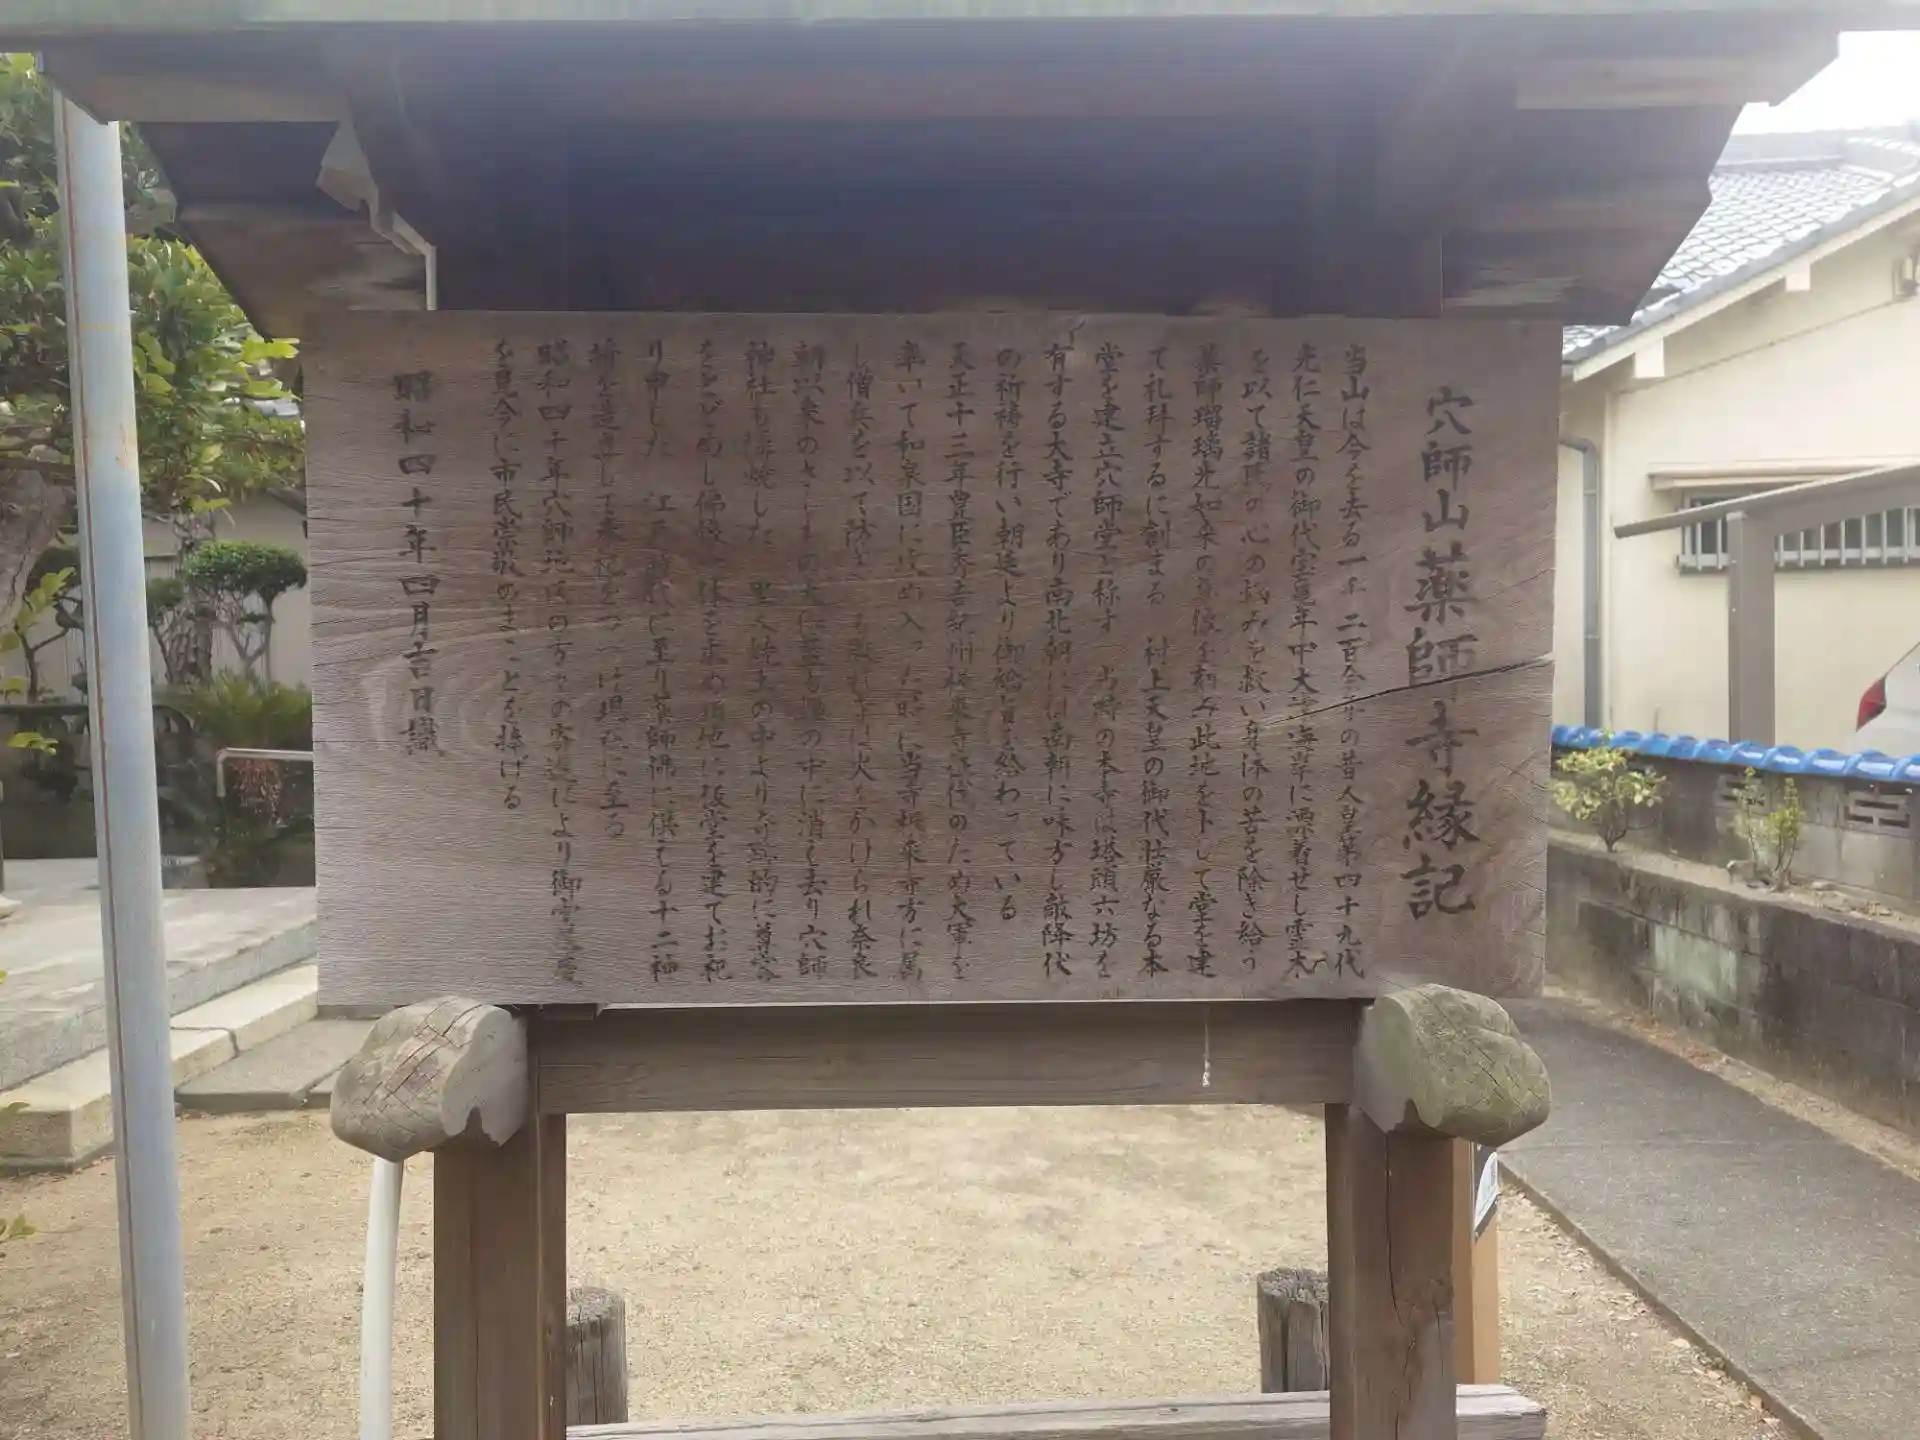 穴師山薬師寺縁記
当山は今を去る一千二百余年の昔人皇第四十九代
光仁天皇の御代宝亀年中大津海岸に漂着せし霊木
を以て諸人の心の悩みを救い身体の苦を除き給う
薬師瑠璃光如来の尊像を刻み此地をトして堂を建
て礼拝するに創まる 村上天皇の御代壮厳なる本
堂を建立穴師堂と称す 当時の本寺は塔頭六坊を
有する大寺であり南北朝には南朝に味方し敵降伏
の祈祷を行い朝廷より御綸旨を給わっている
天正十三年豊臣秀吉紀州根来寺征伐のため大軍を
率いて和泉国に攻め入った時に当寺根来寺方に属
し僧兵を以て防 火をかけられ奈良
朝以来のさしもの大伽藍も煙の中に消え去り穴師
神社も 焼した 焼土の中より奇蹟的に尊容
をとどめし佛像 体を 此地に仮堂を建てお祀
り申した 江戸時代に至り薬師佛に供える十二神
将を造立して奉祀をつづけ現在に至る
昭和四十年穴師地区の方々の寄進により御堂
を見今に市民崇敬のまことを捧げる
昭和四十年四月吉日識